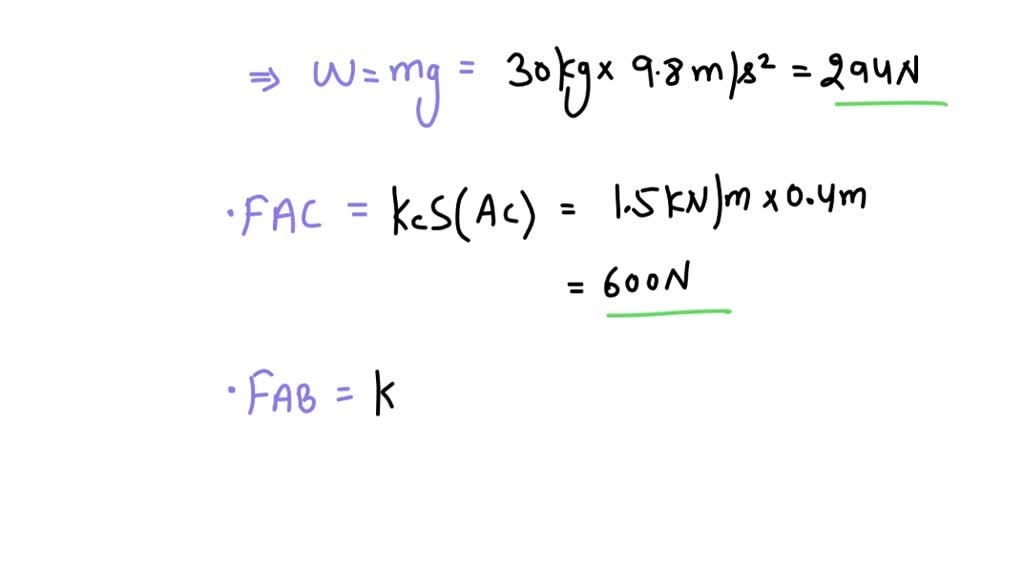 ⇒ W = mg = 30kg × 9.8 m/s² = 294N
·FAC = KcS(AC) = 1.5KN/m × 0.4m
= 600N
·FAB = K